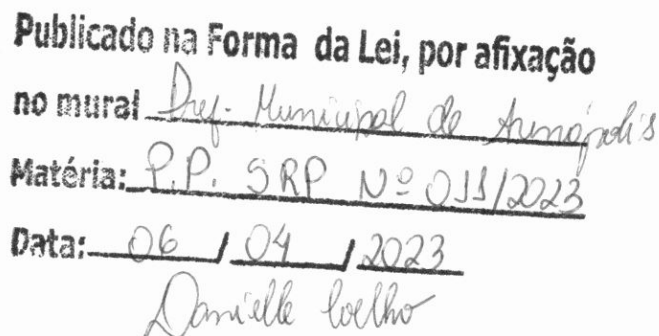 Publicado na Forma da Lei, por afixação
no mural Pref. Municipal de Arenópolis
Matéria: P.P. SRP Nº 011/2023
Data: 06 / 04 / 2023
Danielle Coelho